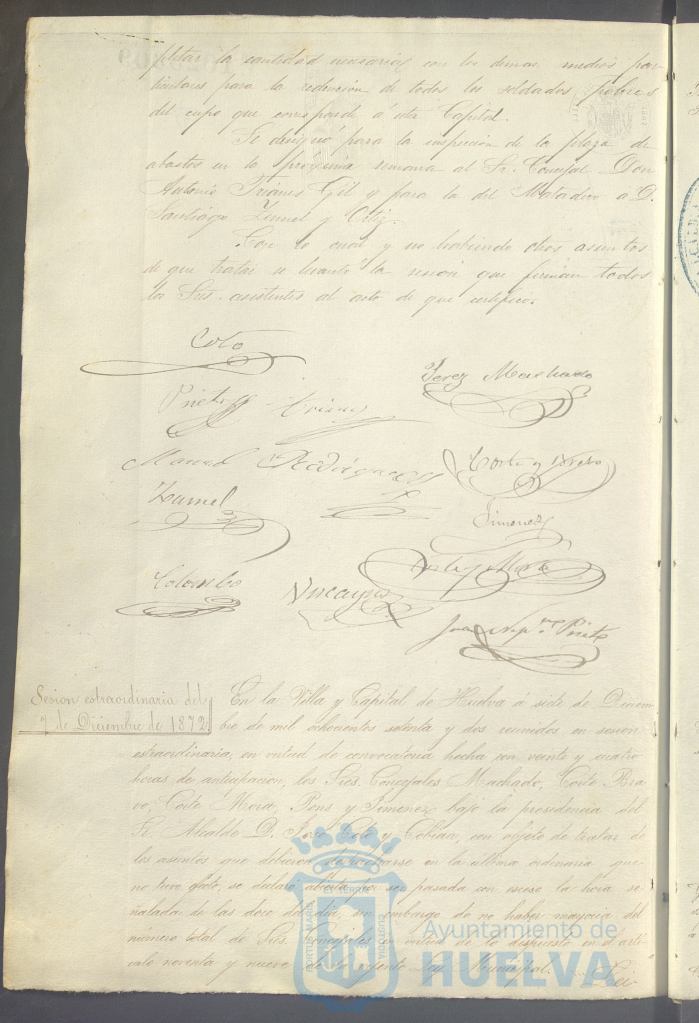 pletar la cantidad necesaria con los demas medios par
ticulares para la redencion de todos los soldados pobres
del cupo que corresponde á esta Capital.
Se designó para la inspeccion de la plaza de
abastos en la proxima semana al Sr. Concejal Don
Antonio Trianes Gil y para la del Matadero a D.
Santiago Zunnel y Ortiz.
Con lo cual y no habiendo otros asuntos
de que tratar se levantó la sesion que firman todos
los Sres. asistentes al acto de que certifico.
Coto
Perez Machado
Prieto Trianes
Manuel Rodriguez
Corte y Bravo
Zunnel
Jimenez
Colombo
Vizcaya
Juan Nep.º Prieto
Sesion estraordinaria del
7 de Diciembre de 1872.
En la Villa y Capital de Huelva á siete de Diciem
bre de mil ochocientos setenta y dos reunidos en sesion
estraordinaria, en virtud de convocatoria hecha con veinte y cuatro
horas de anticipacion, los Sres. Concejales Machado, Corte Bra
vo, Corte Mora, Pons y Jimenez bajo la presidencia del
Sr. Alcalde D. José Coto y Cobian, con objeto de tratar de
los asuntos que debieron despacharse en la ultima ordinaria que
no tuvo efecto, se declaró abierta por ser pasada con exceso la hora se
ñalada de las doce del dia, sin embargo de no haber mayoria del
número total de Sres. Concejales en virtud de lo dispuesto en el artí
culo noventa y nueve de la vigente Ley Municipal. Lei
Ayuntamiento de
HUELVA